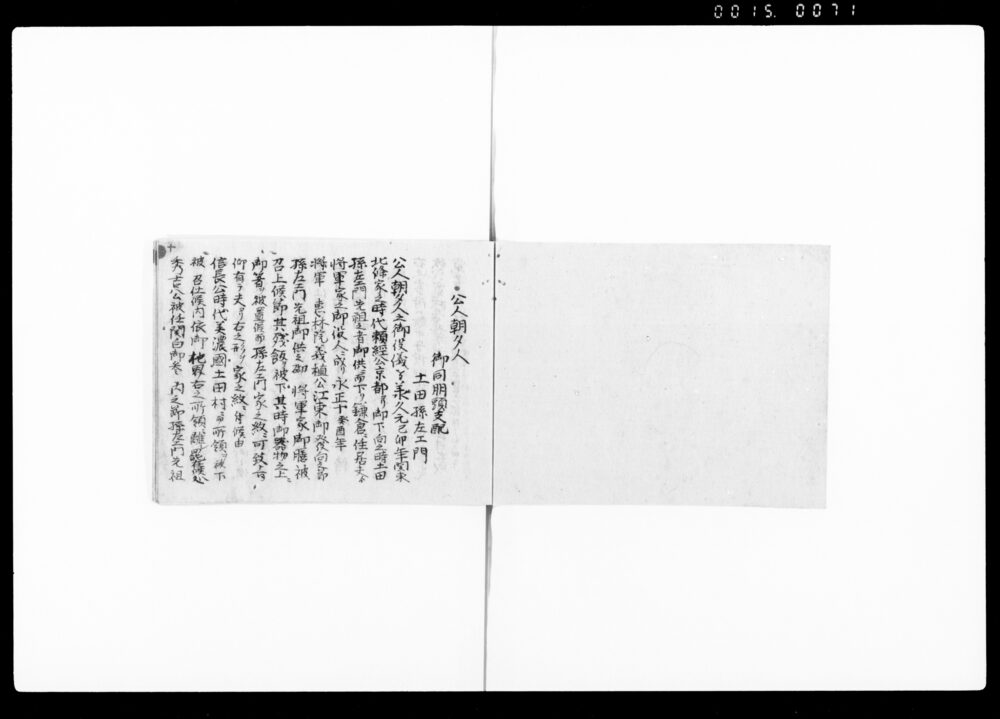 0015. 0071
公人朝夕人
御同朋頭支配
土田孫左エ門
公人朝夕人之御役儀ハ承久元己卯年関東
北條家之時代頼經公京都ゟ御下向之時土田
孫左衛門先祖之者御供ニ而下り鎌倉ニ住居夫ゟ
將軍家之御役人ニ成ル永正十癸酉年
將軍 惠林院義植公江東御發向之節
孫左衛門先祖御供之砌 將軍家御膳被
召上候節其残飯ヲ被下其時御器物之上ニ
御箸ヲ被置候而孫左衛門家之紋ニ可致ト
仰有テ夫ゟ右之形ヲ家之紋ニ付候由
信長公時代美濃國土田村ニ而所領ヲ被下
被 召仕候内依御 他界右之所領離
秀吉公被任関白御参 内之節孫左衛門先祖